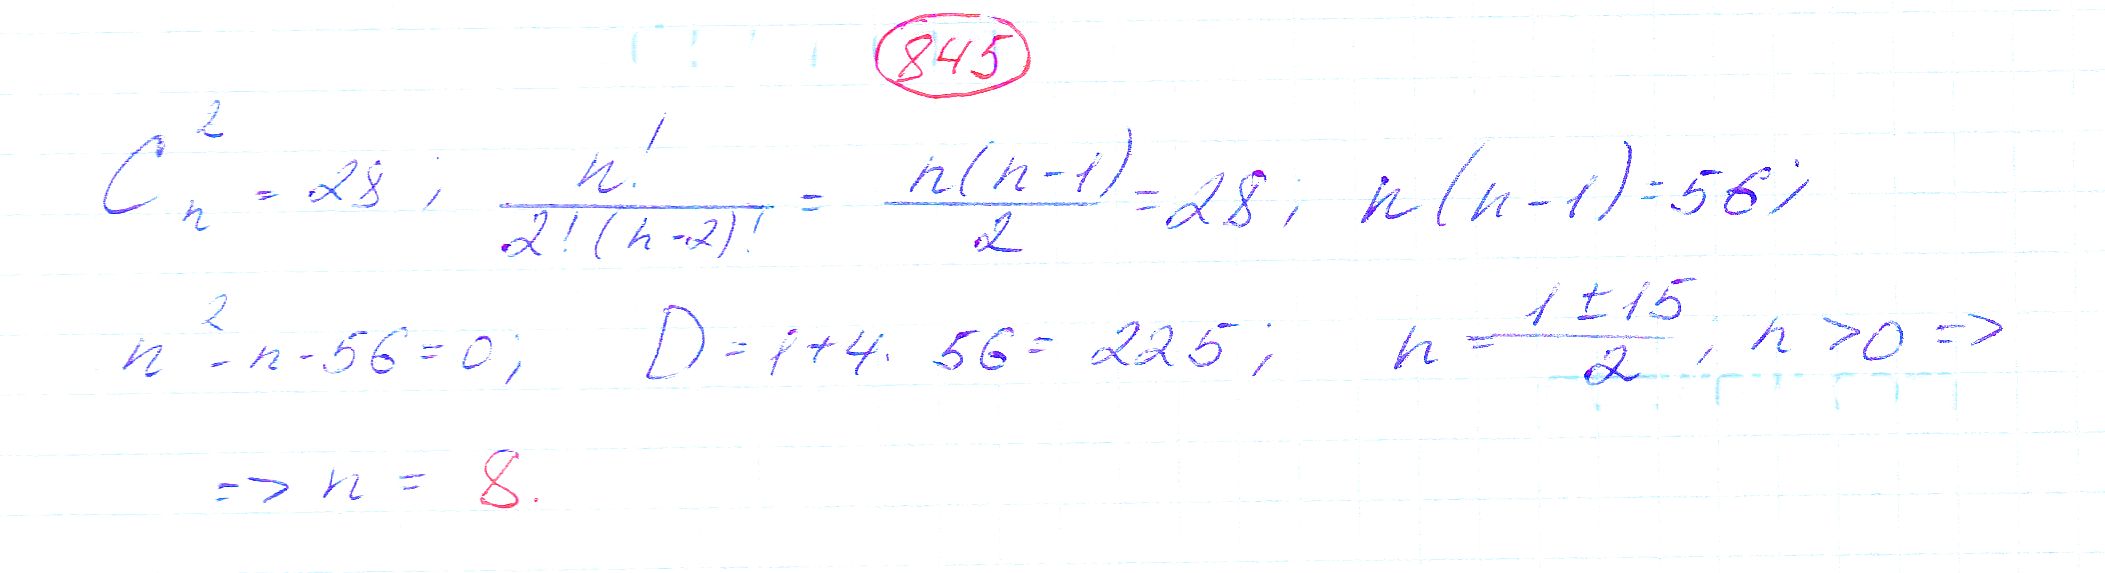 845
C_n^2 = 28; n!/(2!(n-2)!) = n(n-1)/2 = 28; n(n-1)=56;
n^2-n-56=0; D=1+4·56=225; n=(1±15)/2; n>0=>
=> n = 8.